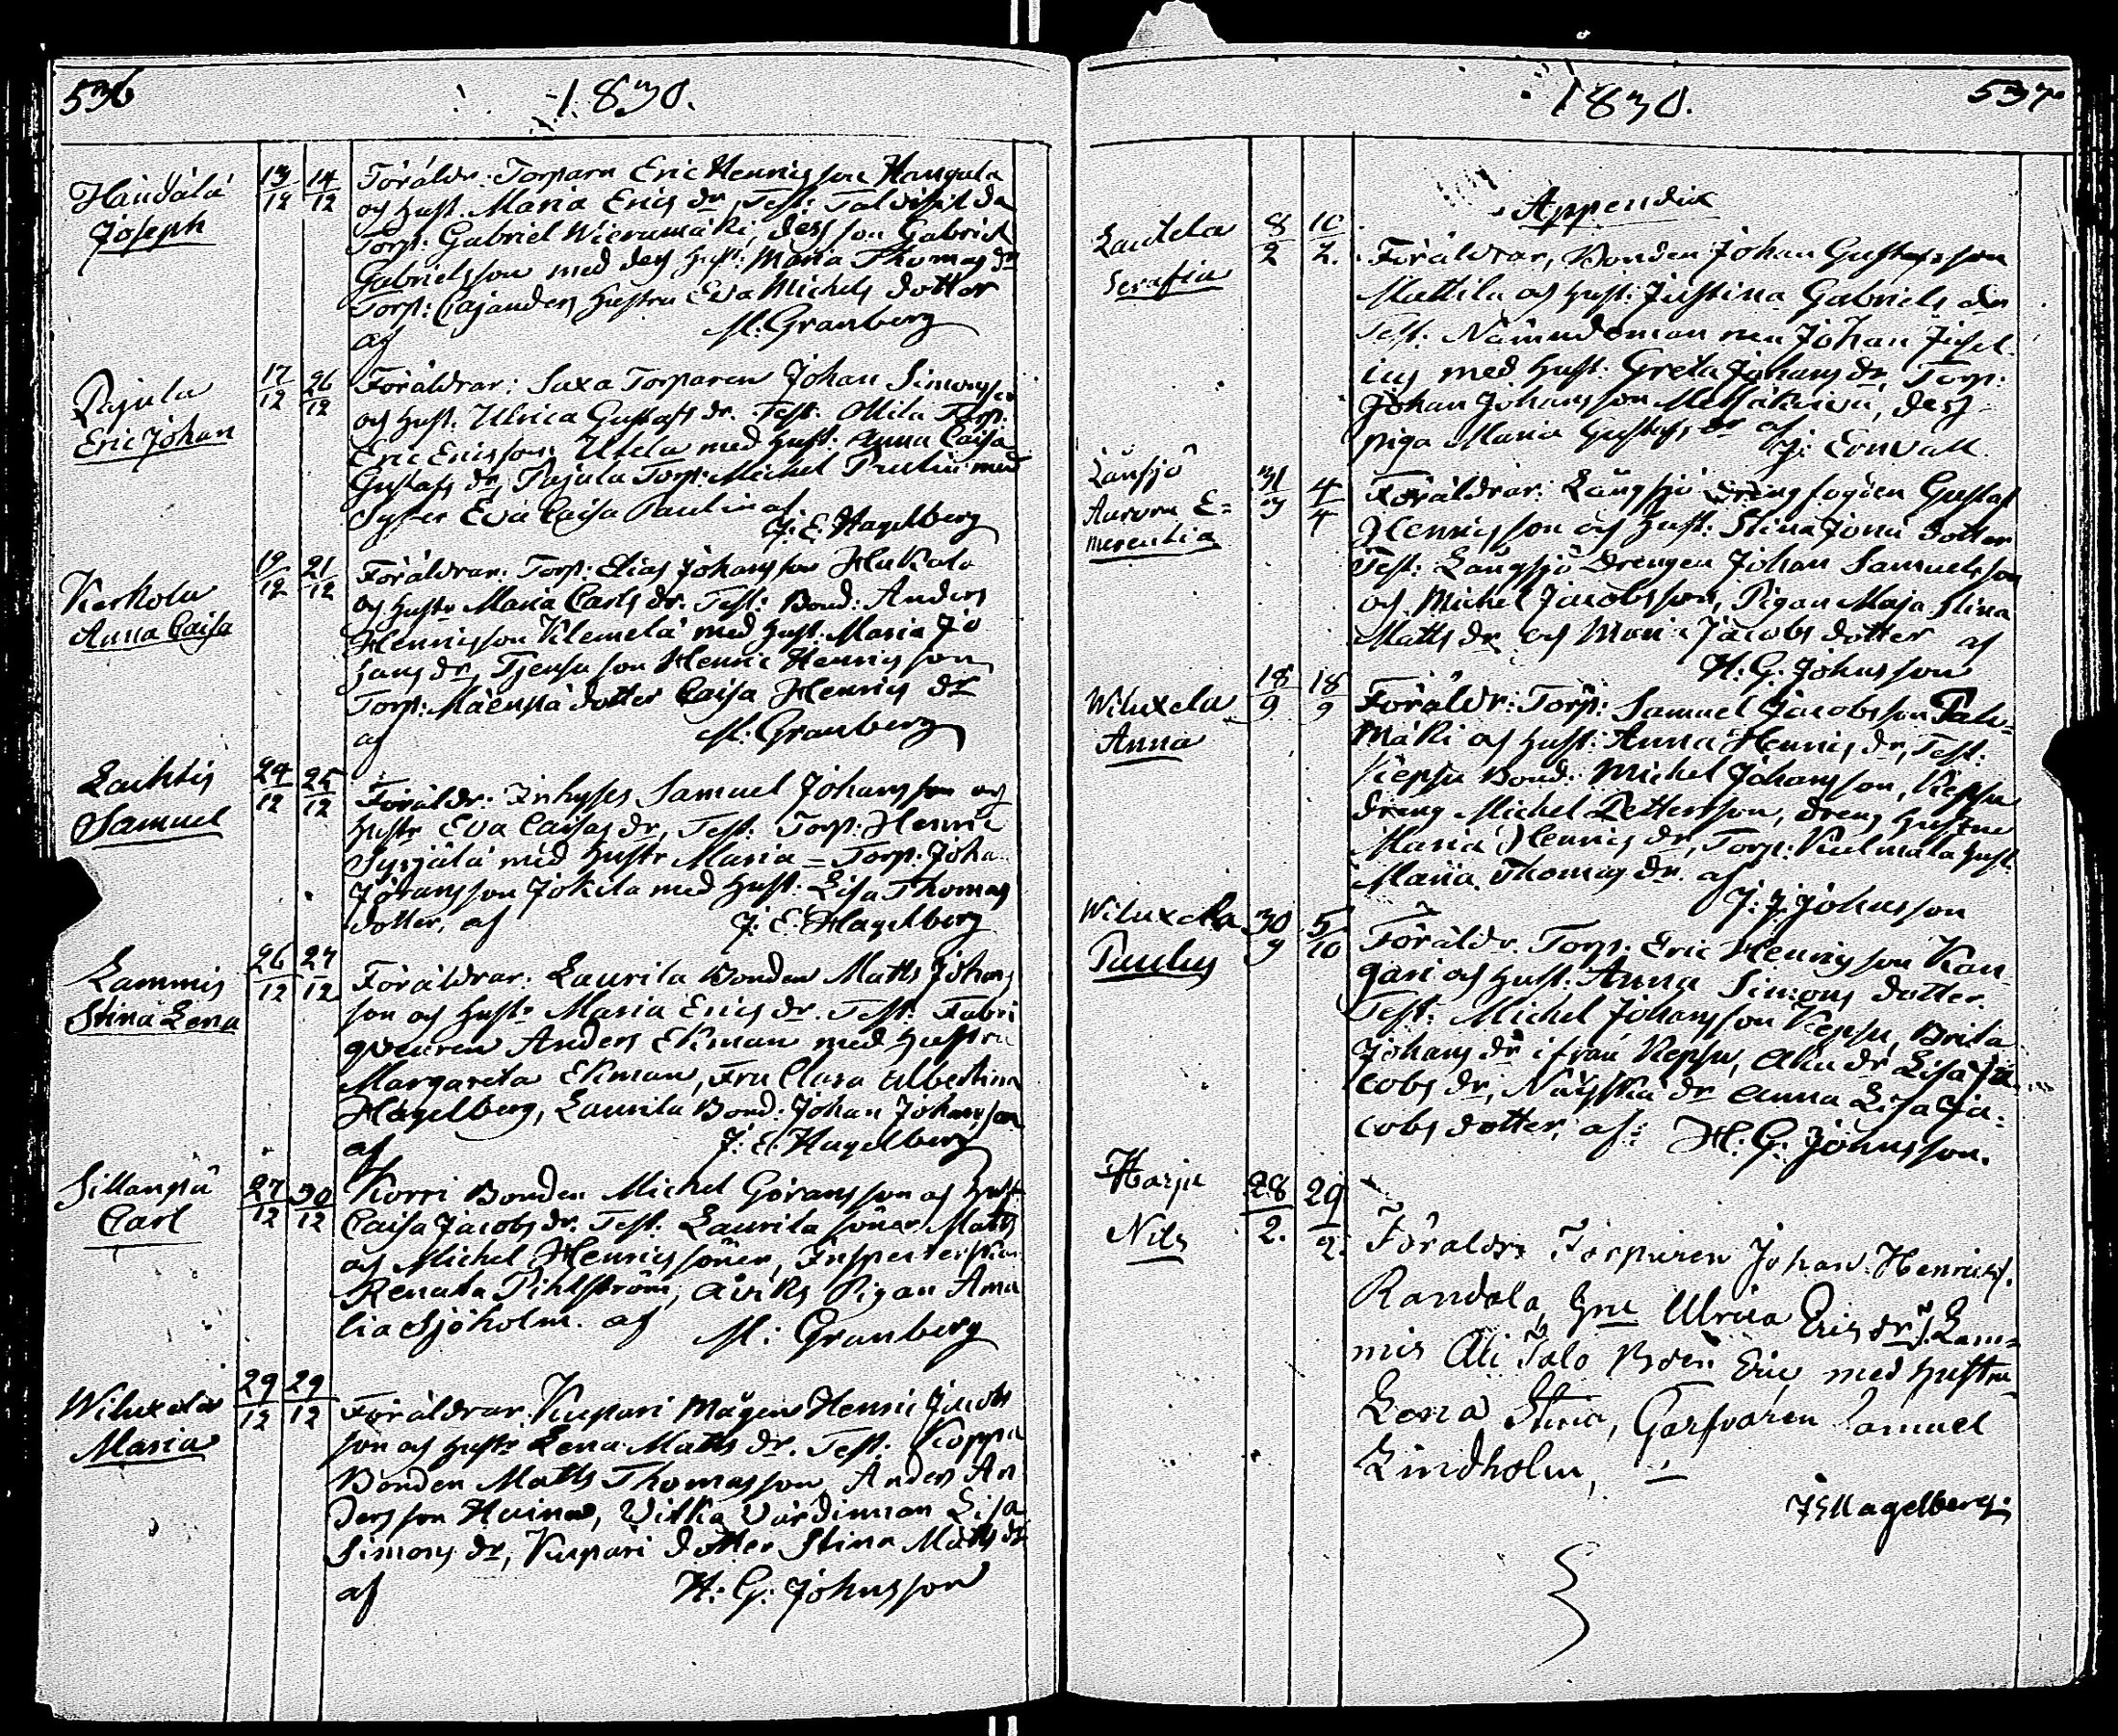 536
1830.
Haudala
Joseph
13/12 14/12
Föräldr: Torparn Eric Henricsson Hangula
och Hust. Maria Erics dr, Test:
Torp: Gabriel Wierumäki, dess son Gabriel
Gabrielsson med dess Hust: Maria Thomas dr
Torp: Cajanders Hustru Eva Michels dotter
af M. Granberg
Pajula
Eric Johan
17/12 26/12
Föräldrar: Saxa Torparen Johan Simonsson
och Hust. Ulrica Gustafs dr. Test: Ollila Torp:
Eric Ericsson Utela med Hust: Anna Caisa
Gustafs dr, Pajula Torp: Michel Paulin med
Syster Eva Caisa Paulin af
J. E. Hagelberg
Karkola
Anna Caisa
19/12 21/12
Föräldrar: Torp: Elias Johansson Hukala
och Hustr Maria Carls dr. Test: Bond: Anders
Henricsson Klemelä med Hust. Maria Jo
hans dr, Tjensu son Henric Henricsson
Torp: Mäenpä dotter Caisa Henrics dr
af M. Granberg
Lachtis
Samuel
24/12 25/12
Föräldr: Inhyses Samuel Johansson och
Hustr Eva Caisas dr, Test: Torp: Henric
Syrjälä med Hustr Maria = Torp: Joha
Göransson Jokela med Hust: Lisa Thomas
dotter, af J. E. Hagelberg
Lammis
Stina Lena
26/12 27/12
Föräldrar: Laurila Bonden Matts Johans
son och Hustr Maria Erics dr. Test: Fabri
queuren Anders Ekman med Hustru
Margareta Ekman, Fru Clara Albertina
Hagelberg, Laurila Bond: Johan Johansson
af J. E. Hagelberg
Sillanpä
Carl
27/12 30/12
Korri Bonden Michel Göransson och Hust
Caisa Jacobs dr. Test: Laurila söner Matts
och Michel Henrics söner, Inspectorskan
Renata Pihlström, Aviks Pigan Ama
lia Sjöholm. af M: Granberg
Wiluxela
Maria
29/12 29/12
Föräldrar Kaupari Mågen Henric Jacobs
son och Hustr Lena Matts dr. Test. Koppa
Bonden Matts Thomasson, Anders An
dersson Huina, Vitka Värdinnan Lisa
Simons dr, Kaupari dotter Stina Matts dr
af H. G. Johnsson
1830. 537
Appendix
Lautela
Serafia
8/2 10/2.
Föräldrar, Bonden Johan Gustafsson
Mattila och Hust: Justina Gabriels dr
Test: Nämndeman nen Johan Jusel
ius med Hust: Greta Johans dr, Torp:
Johan Johansson Metsäkivi, dess
piga Maria Gustafs dr af
J: Convall
Långsjö
Aurora E=
merentia
31/3 4/4
Föräldrar: Långsjö Drengfogden Gustaf
Henricsson och Hust: Stina Jona dotter
Test: Långsjö Drengen Johan Samuelsson
och Michel Jacobsson, Pigan Maja Stina
Matts dr och Maria Jacobs dotter af
H. G. Johnsson
Wiluxela
Anna
18/9 18/9
Föräldr: Torp: Samuel Jacobsson Palo=
mäki och Hust: Anna Henrics dr, Test:
Kepsu Bond: Michel Johansson, Kepsu
dreng Michel Pettersson, dreng Hustru
Maria Henrics dr, Torp: Kulmala Hust
Maria Thomas dr. af
J. J. Johnsson
Wiluxela
Paulus
30/9 5/10
Föräldr. Torp. Eric Henricsson Kan
gari och Hust: Anna Simons dotter.
Test: Michel Johansson Kepsu, Brita
Johans dr ifrån Kepsu, Ala dr Lisa Ja
cobs dr, Näyskä dr Anna Lisa Ja=
cobs dotter, af: H. G. Johnsson.
Harju
Nils
28/2. 29/2.
Föräldr Torparen Johan Henricss.
Randala, Hru Ulrica Erics dr, T. Lam=
mis Ali Talo Bden Eric med Hustru
Lena Stina, Garfvaren Samuel
Lindholm,
JEHagelberg.